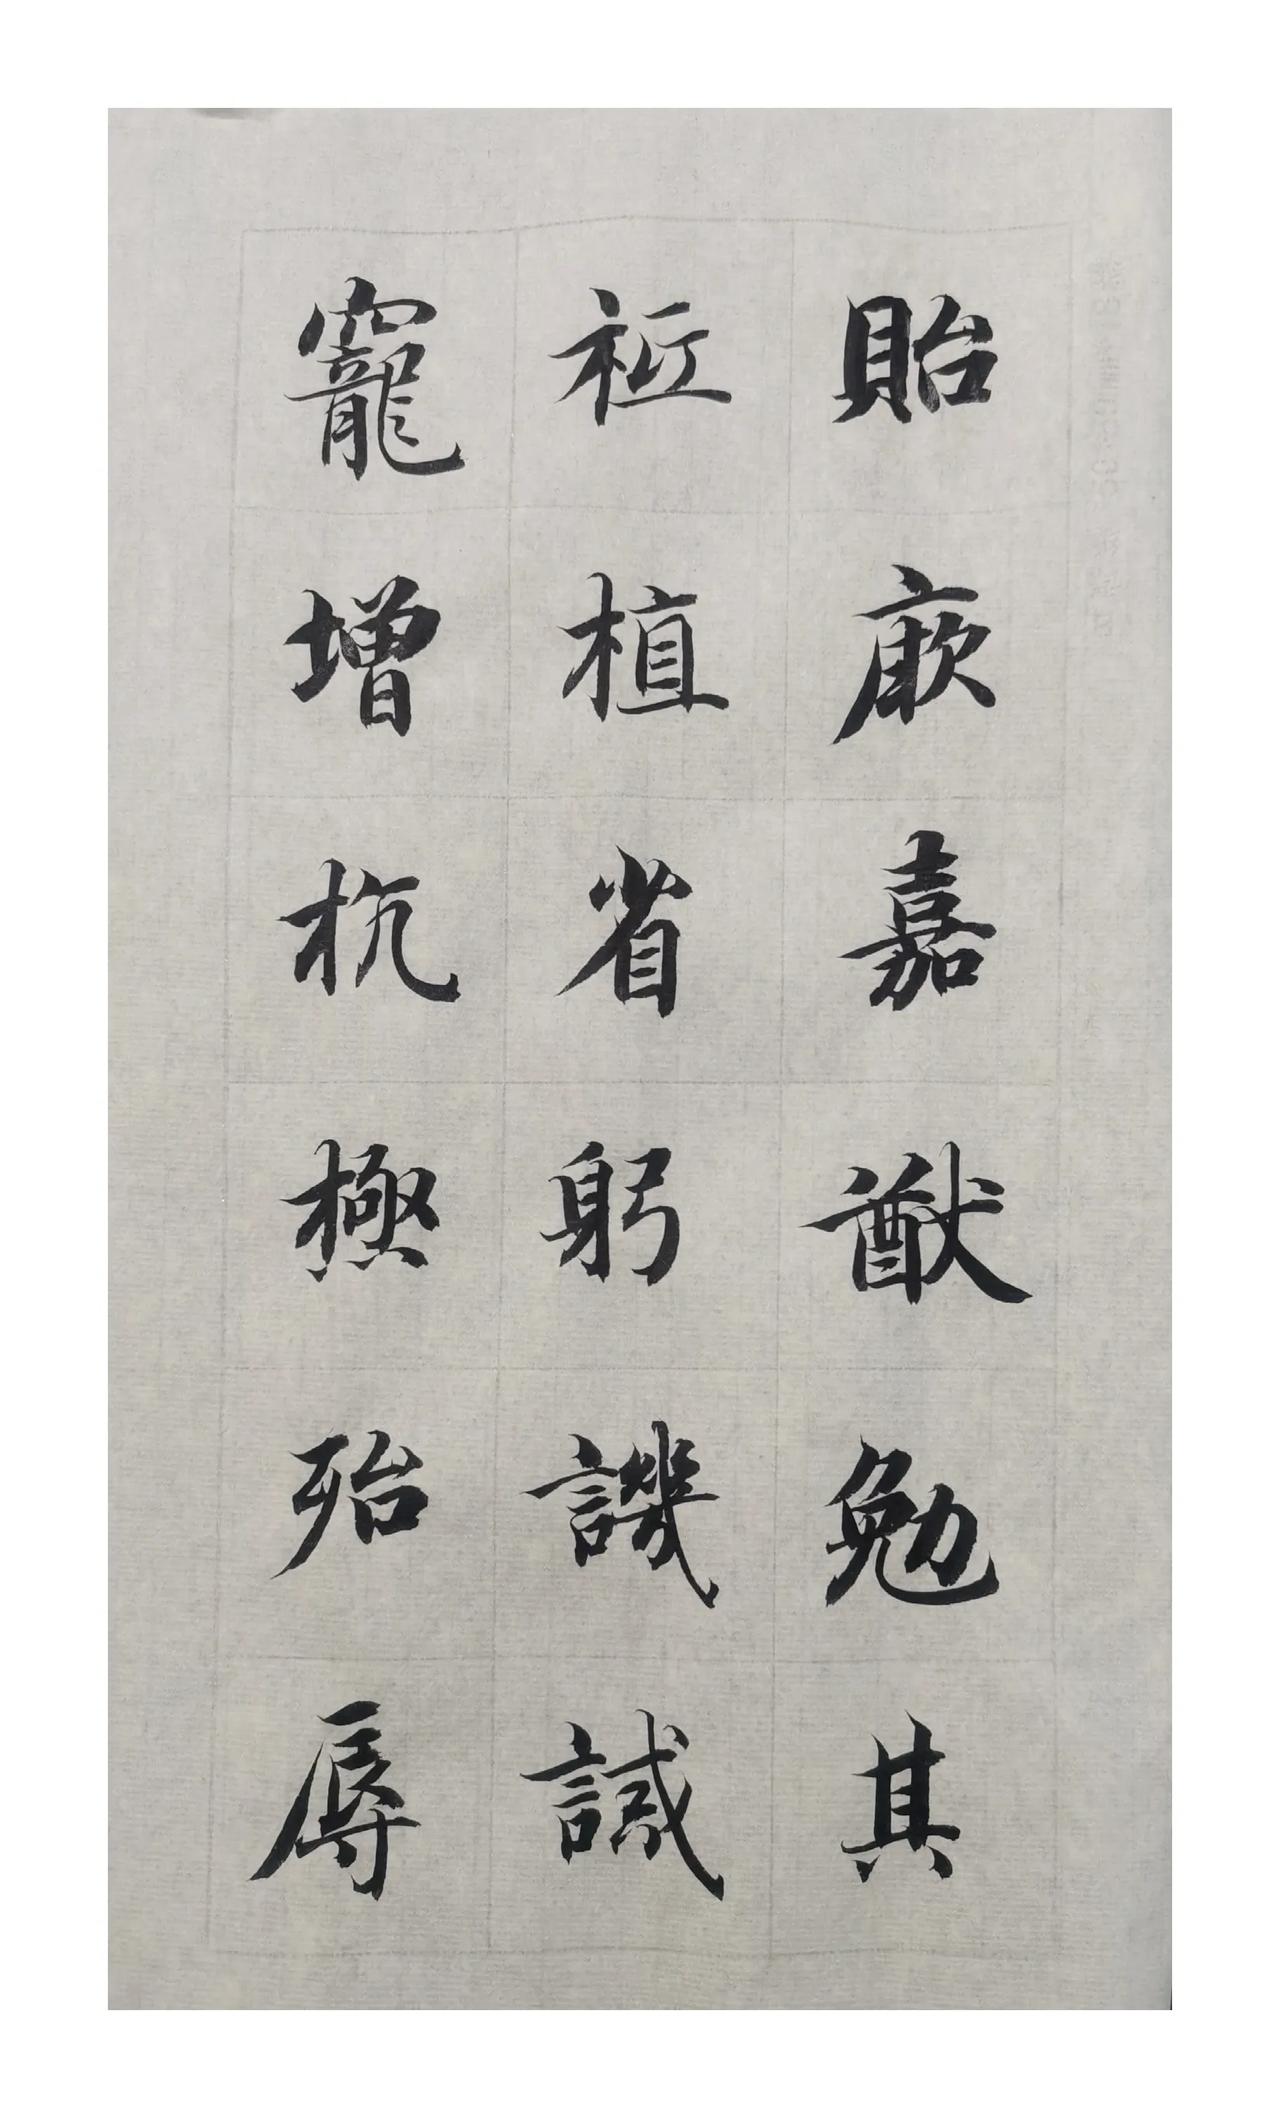 貽厥嘉猷勉其
祗植省躬譏誡
寵增抗極殆辱